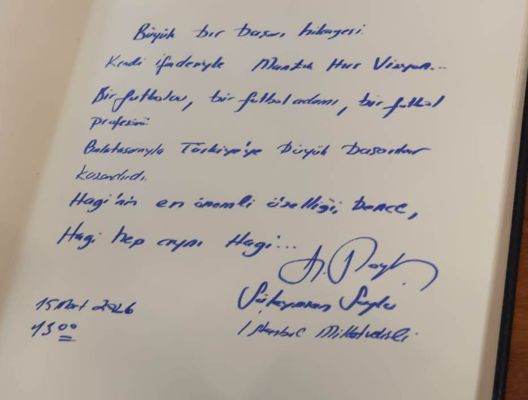 Büyük bir başarı hikayesi.
Kendi ifadesiyle Mantık Hırs Vizyon...
Bir futbolcu, bir futbol adamı, bir futbol
profesörü
Galatasarayla Türkiye'ye büyük başarılar
kazandırdı.
Hagi'nin en önemli özelliği, bence,
Hagi hep aynı Hagi...
Süleyman Soylu
15 Mart 2026
İstanbul Milletvekili
1300